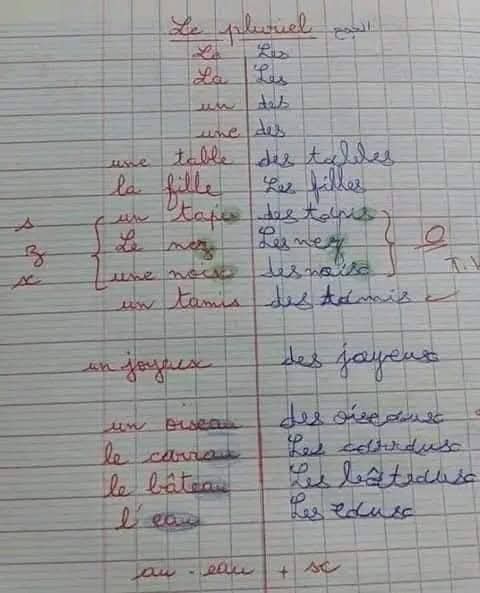 Le pluriel الجمع
Le Les
La Les
un des
une des
une table des tables
la fille Les filles
s un tapis des tapis
z Le nez Les nez O
x une noix des noix T.V
un tamis des tamis
un joyeux des joyeux
un oiseau des oiseaux
le carrau Les carraux
le bâteau Les bâteaux
l'eau Les eaux
au - eau + x